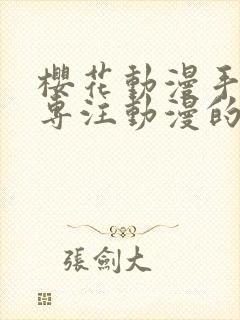 櫻花動漫手
專注動漫的
張劍大